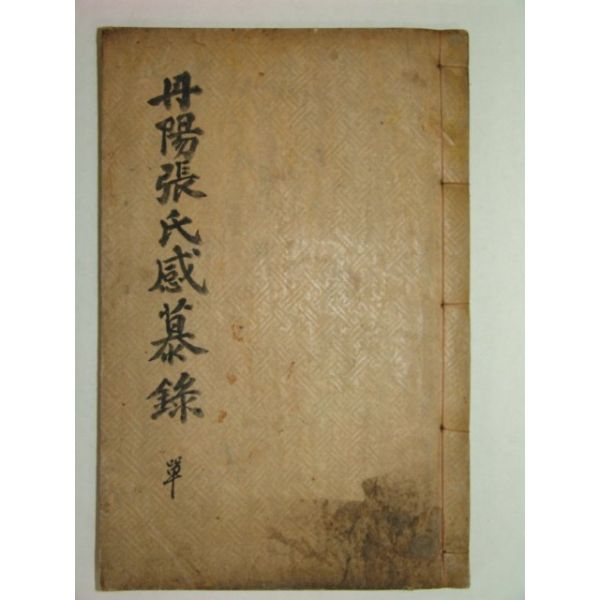 丹陽張氏感慕錄
單